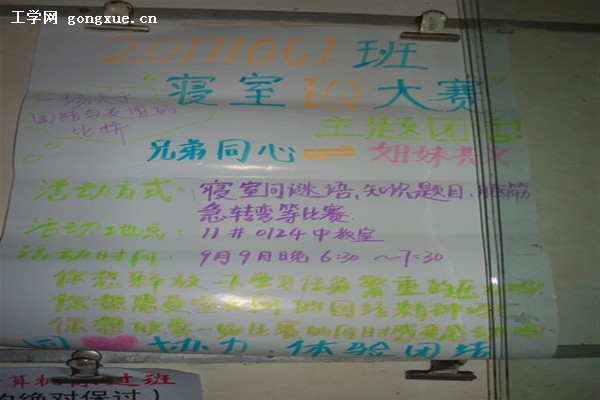 工学网 gongxue.cn
20111061 班
"寝室IQ大赛"
一场关于
团结与友谊的
比拼
主题团活!
兄弟同心 ⇌ 姐妹
活动方式: 寝室间谜语,知识题目,脑筋
急转弯等比赛
活动地点: 11#0124中教室
活动时间: 9月9日晚 6:30 ~7:30
你想释放一下学习任务繁重的压力吗!
你想感受室友间的团结精神吗
你想欣赏一场比赛的同时感受
同 协力 体验团结
算机 过班
的绝对保过)